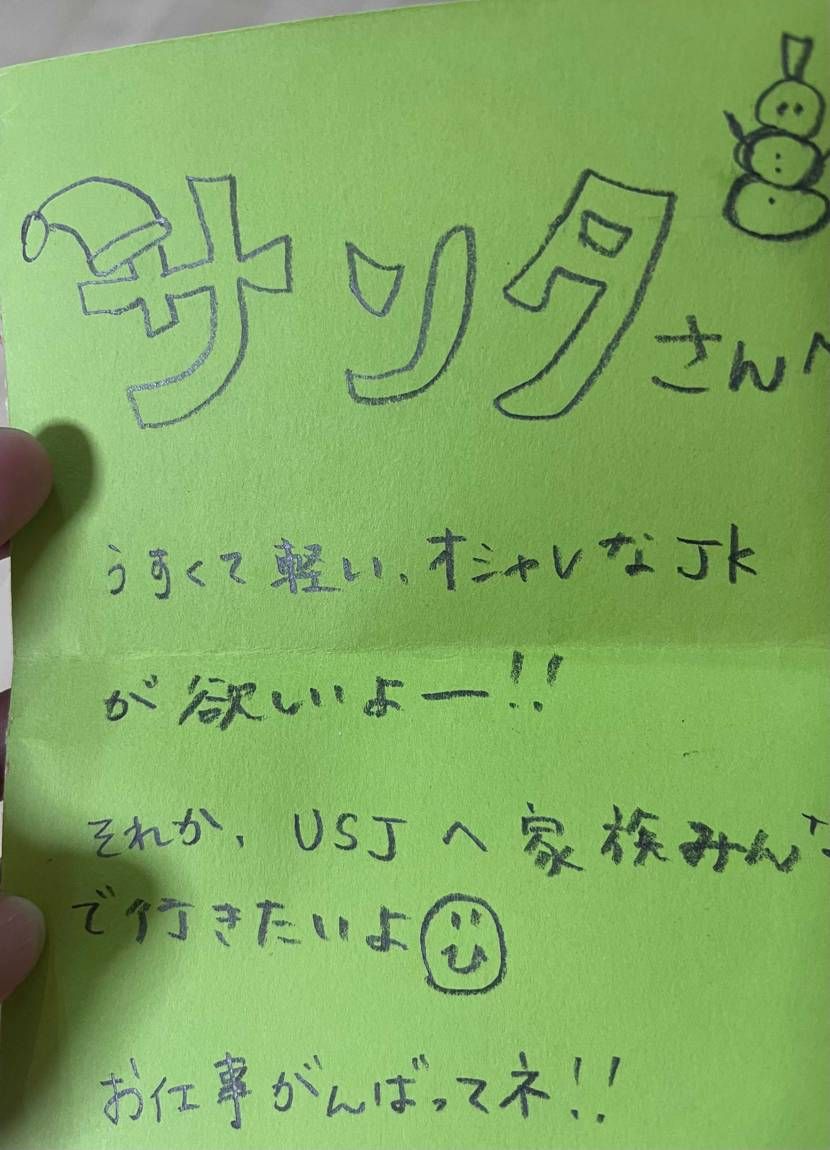 サンタさんへ
うすくて軽い、オシャレなJK
が欲しいよー!!
それか、USJへ家族みんな
で行きたいよ
お仕事がんばってネ!!